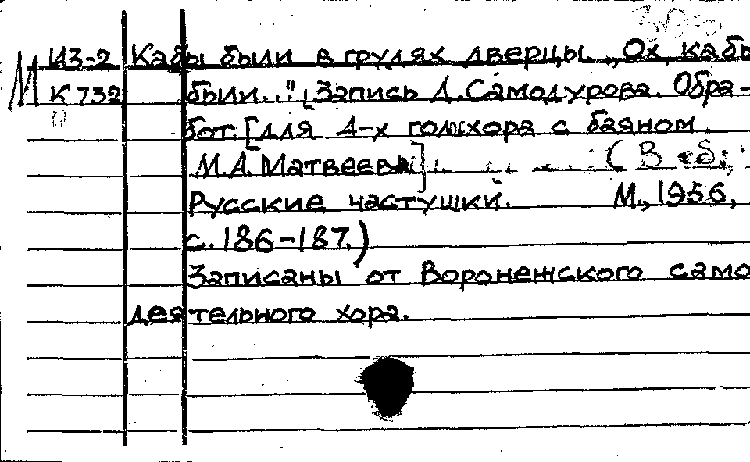 М ИЗ-2 Кабы были в грудях дверцы. „Ох, кабы
К 732 были..." [Запись Д. Самодурова. Обра-
бот. [для 4-х гол. хора с баяном.
М.А. Матвеева] (В сб.:
Русские частушки. М., 1956,
с. 186-187.)
Записаны от Воронежского само
деятельного хора.